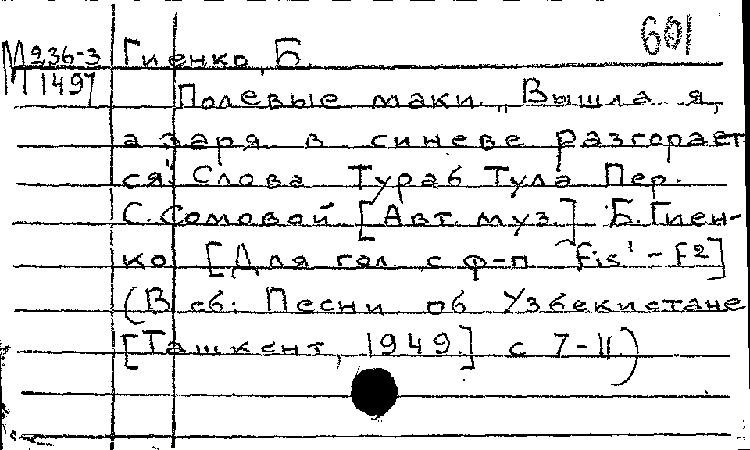 601
М 236-3 Гиенко, Б.
1497
Полевые маки. „Вышла я,
а заря в синеве разгорает
ся". Слова Тураб Тула Пер.
С. Сомовой [Авт. муз.] Б. Гиен-
ко [Для гол. с ф-п fis¹ - f²]
(В сб: Песни об Узбекистане
[Ташкент, 1949.] с 7-11.)